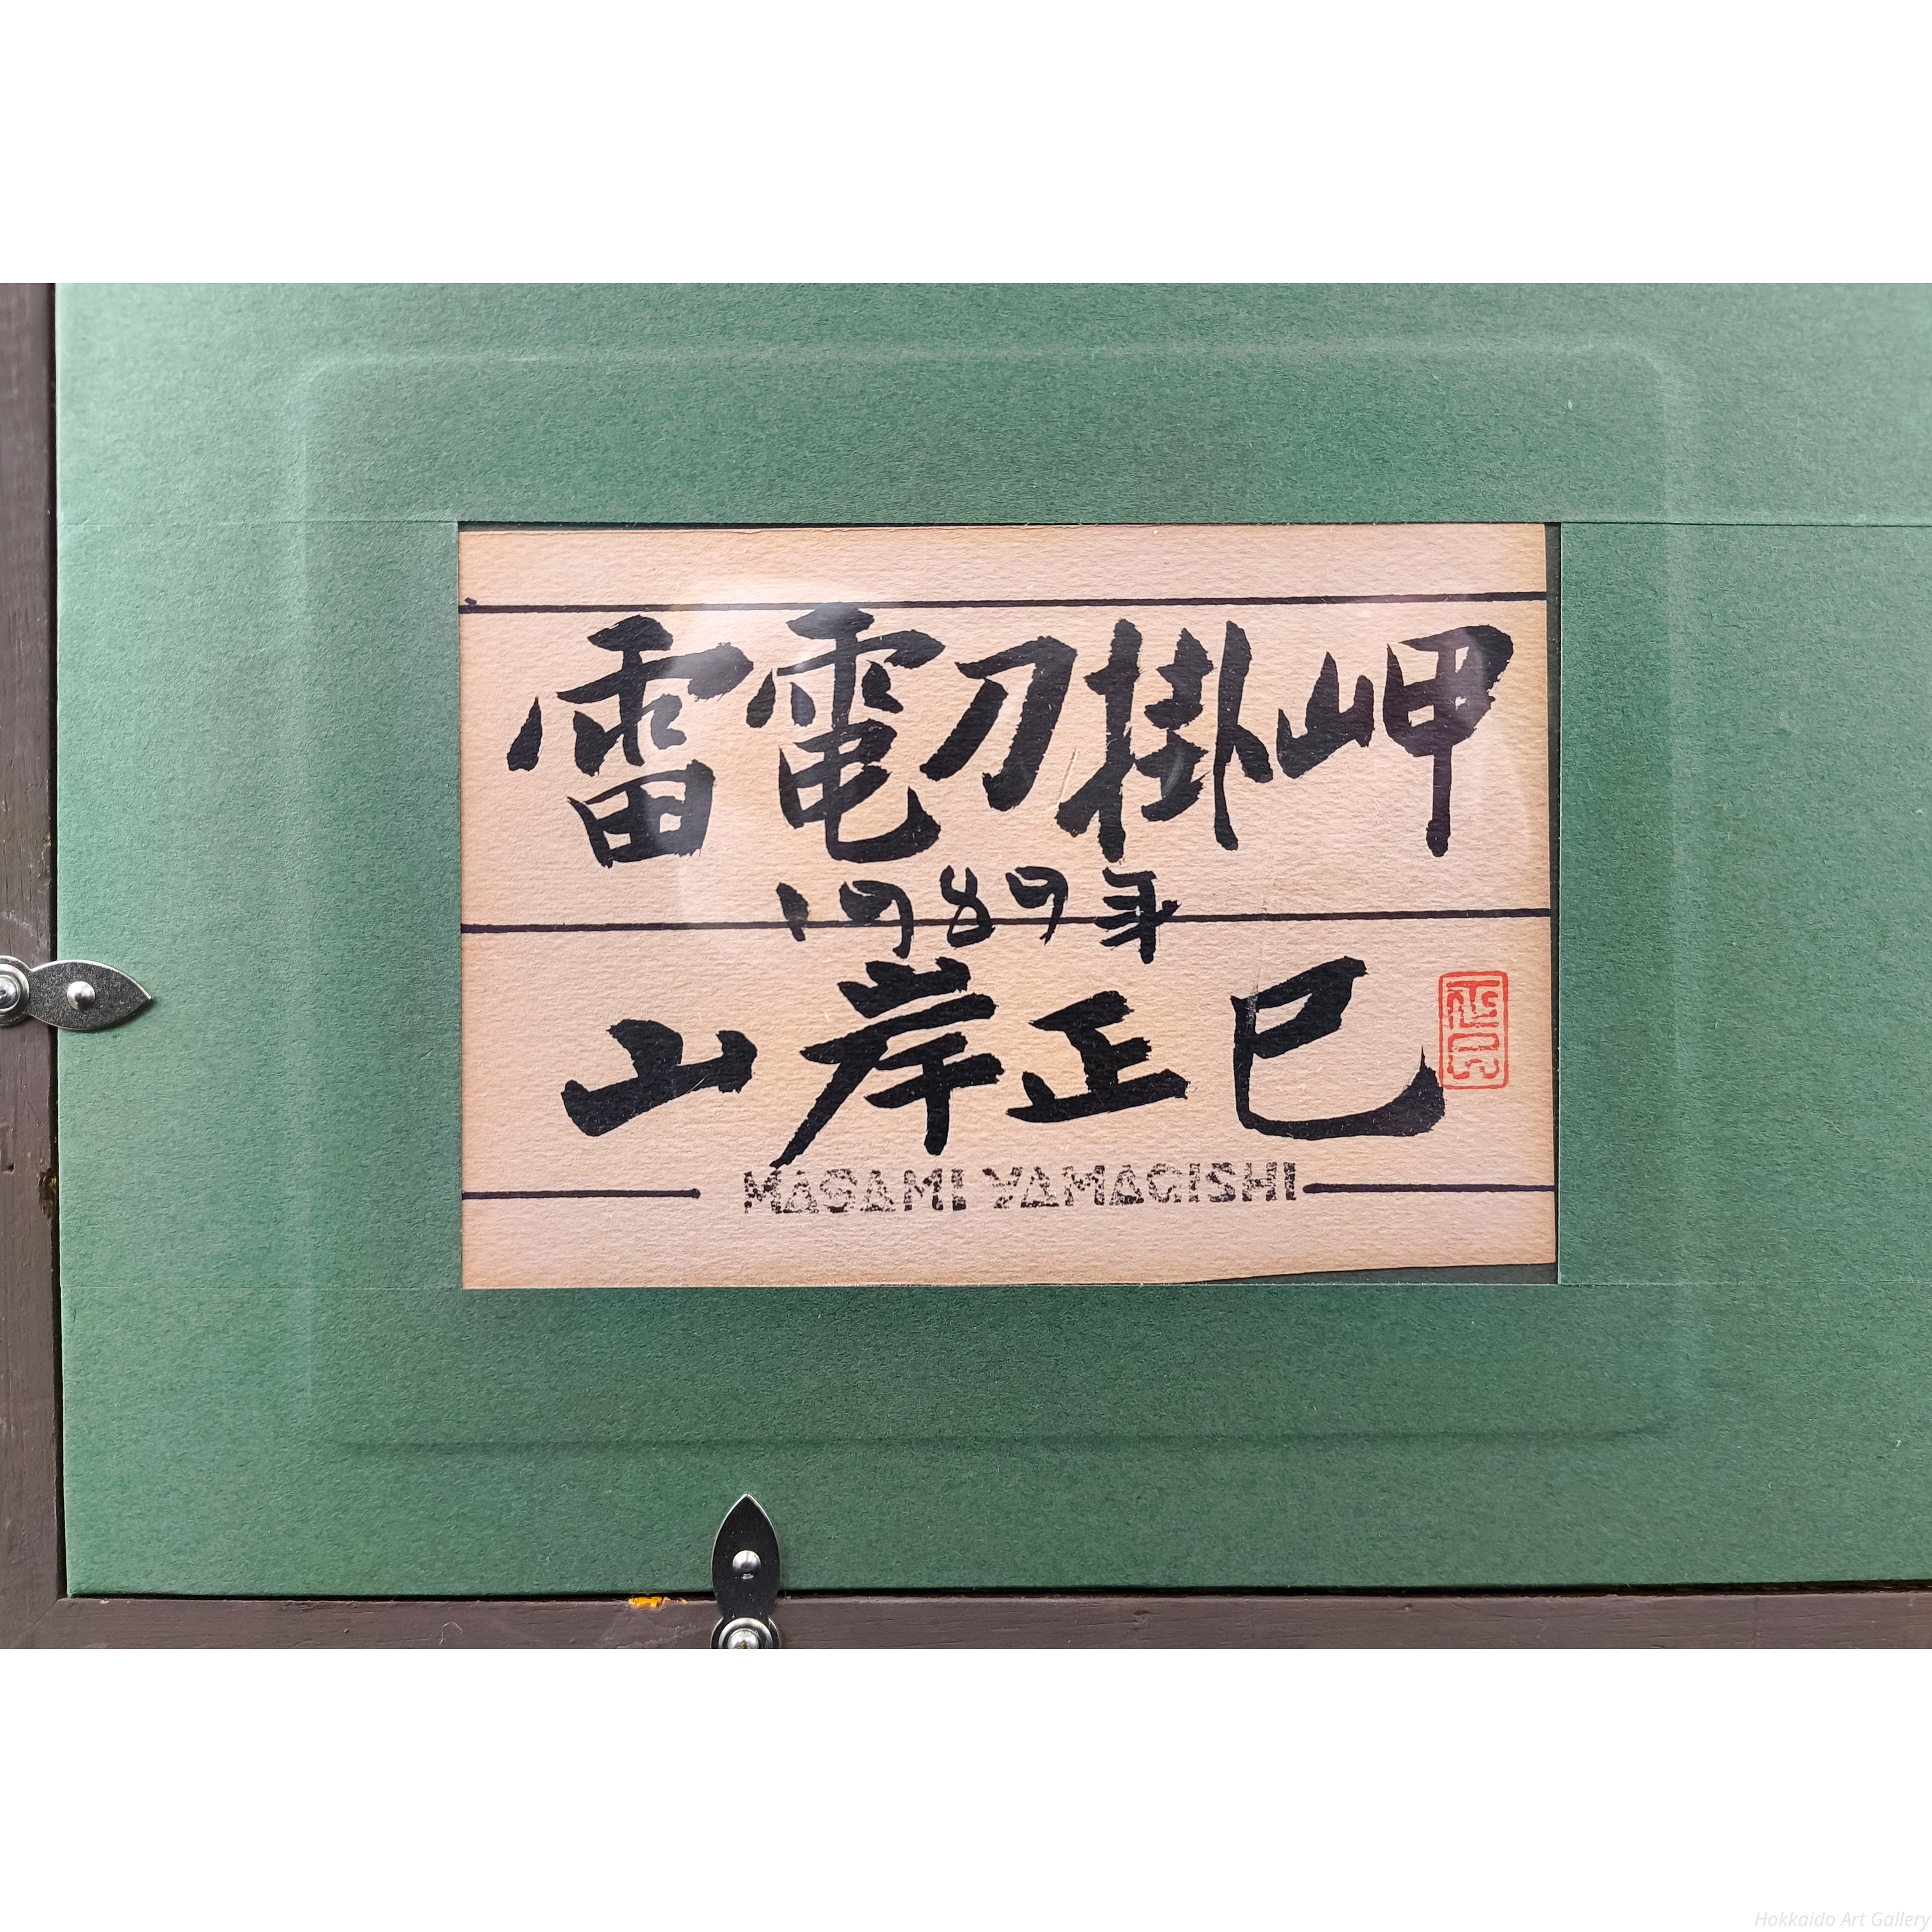 雷電刀掛岬
1989年
山岸正巳
正巳
MASAMI YAMAGISHI
Hokkaido Art Gallery